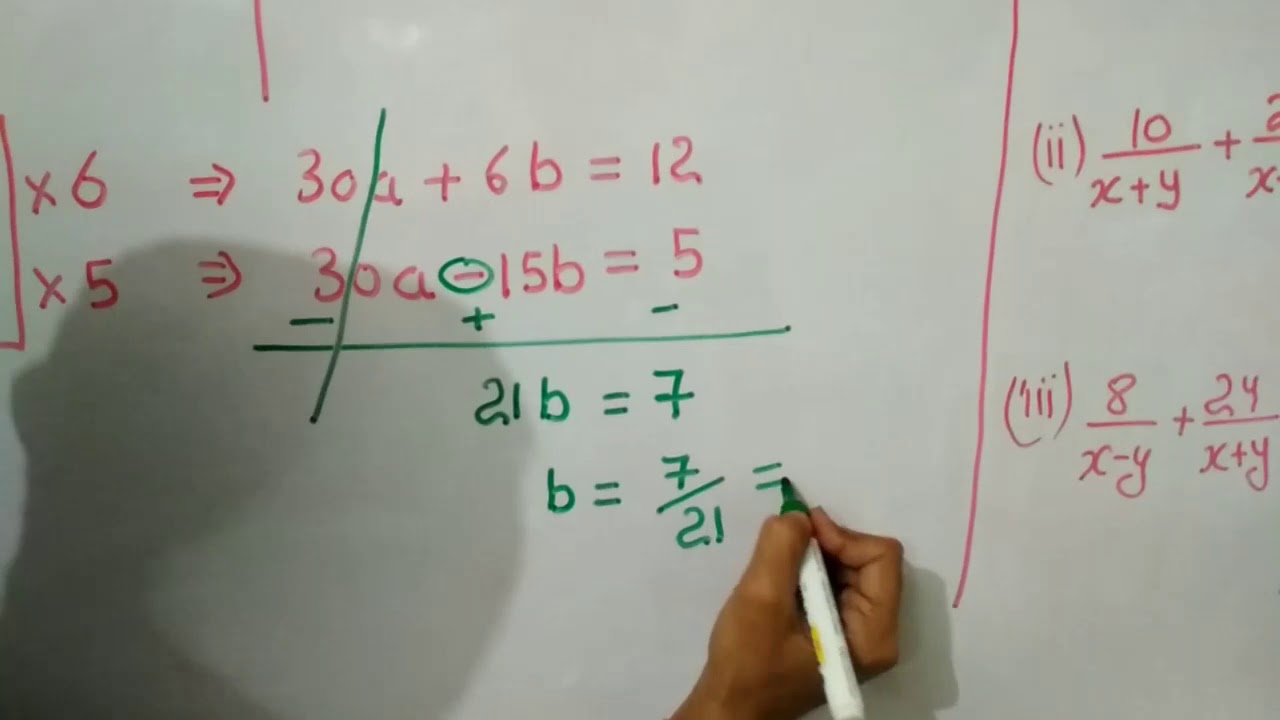 ×6 ⇒ 30a + 6b = 12
×5 ⇒ 30a - 15b = 5
- + -
21b = 7
b = 7/21 =
(ii) 10/x+y +
(iii) 8/x-y + 24/x+y